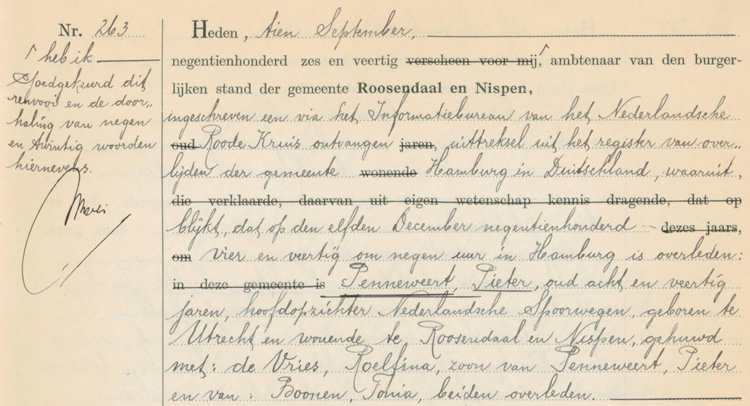 Nr. 263
⌈ heb ik
Goedgekeurd dit
renvooi en de door-
haling van negen
en twintig woorden
hiernevens.
Heden, tien September,
negentienhonderd zes en veertig verscheen voor mij,⌈ ambtenaar van den burger-
lijken stand der gemeente Roosendaal en Nispen,
ingeschreven een via het Informatiebureau van het Nederlandsche
oud Roode Kruis ontvangen jaren, uittreksel uit het register van over-
lijden der gemeente wonende Hamburg in Duitschland, waaruit,
die verklaarde, daarvan uit eigen wetenschap kennis dragende, dat op
blijkt, dat op den elfden December negentienhonderd dezes jaars,
om vier en veertig om negen uur in Hamburg is overleden:
in deze gemeente is Penneweert, Pieter, oud acht en veertig
jaren, hoofdopzichter Nederlandsche Spoorwegen, geboren te
Utrecht en wonende te Roosendaal en Nispen, gehuwd
met: de Vries, Roelfina, zoon van Penneweert, Pieter
en van: Boonen, Tonia, beiden overleden.